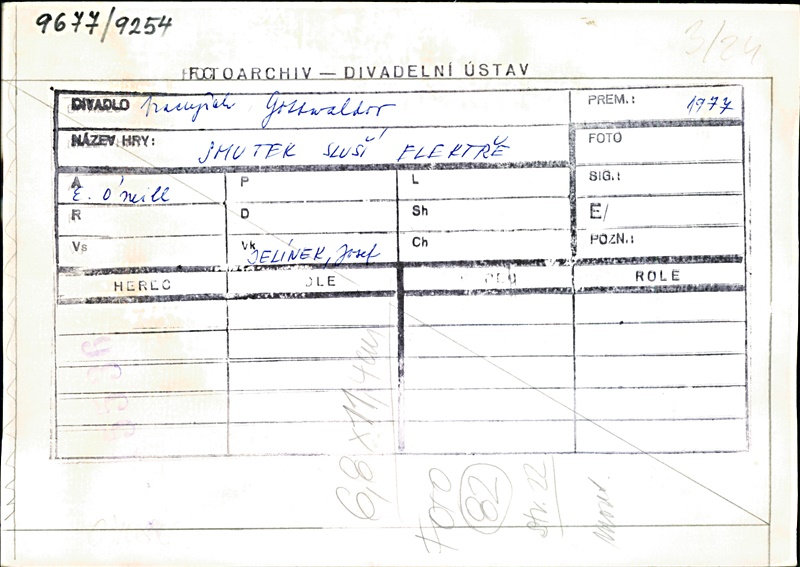 9677/9254
3/24
FOTOARCHIV — DIVADELNÍ ÚSTAV
DIVADLO pracujících Gottwaldov
PREM.: 1977
NÁZEV HRY: SMUTEK SLUŠÍ ELEKTŘE
FOTO
A E. O'neill
P
L
SIG.:
R
D
Sh
E/
Vs
Vk JELÍNEK, Josef
Ch
POZN.:
HEREC
ROLE
ROLE
6,8 x 11,4 cm
FOTO
82
str. 22